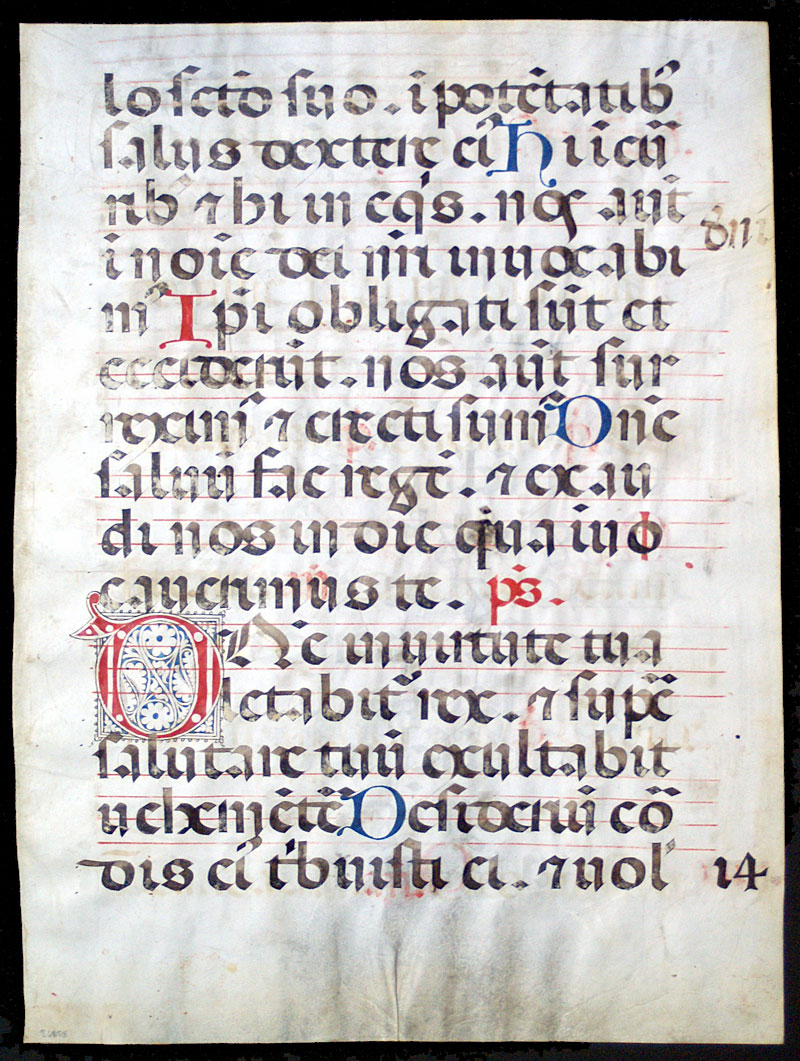 lo sc̄to suo. ī potētatib᷒
salus dextere ei᷒ Hii ī cu᷒r
rib᷒ ⁊ hi in eq̄s. nos aūt
in noīe dei n̄ri inuocabi
m᷒ Ipi obligati sūt et
ceciderūt. nos aūt sur
rexim᷒ ⁊ erecti sum᷒ Dn̄e
saluū fac regē. ⁊ exau
di nos in die qua inuo
cauerimus te. ps.
DNe in uirtute tua
letabit᷑ rex. ⁊ sup̄
salutare tuū exultabit
uehemētē Desideriū cor
dis ei᷒ tbuisti ei. ⁊ uol 14